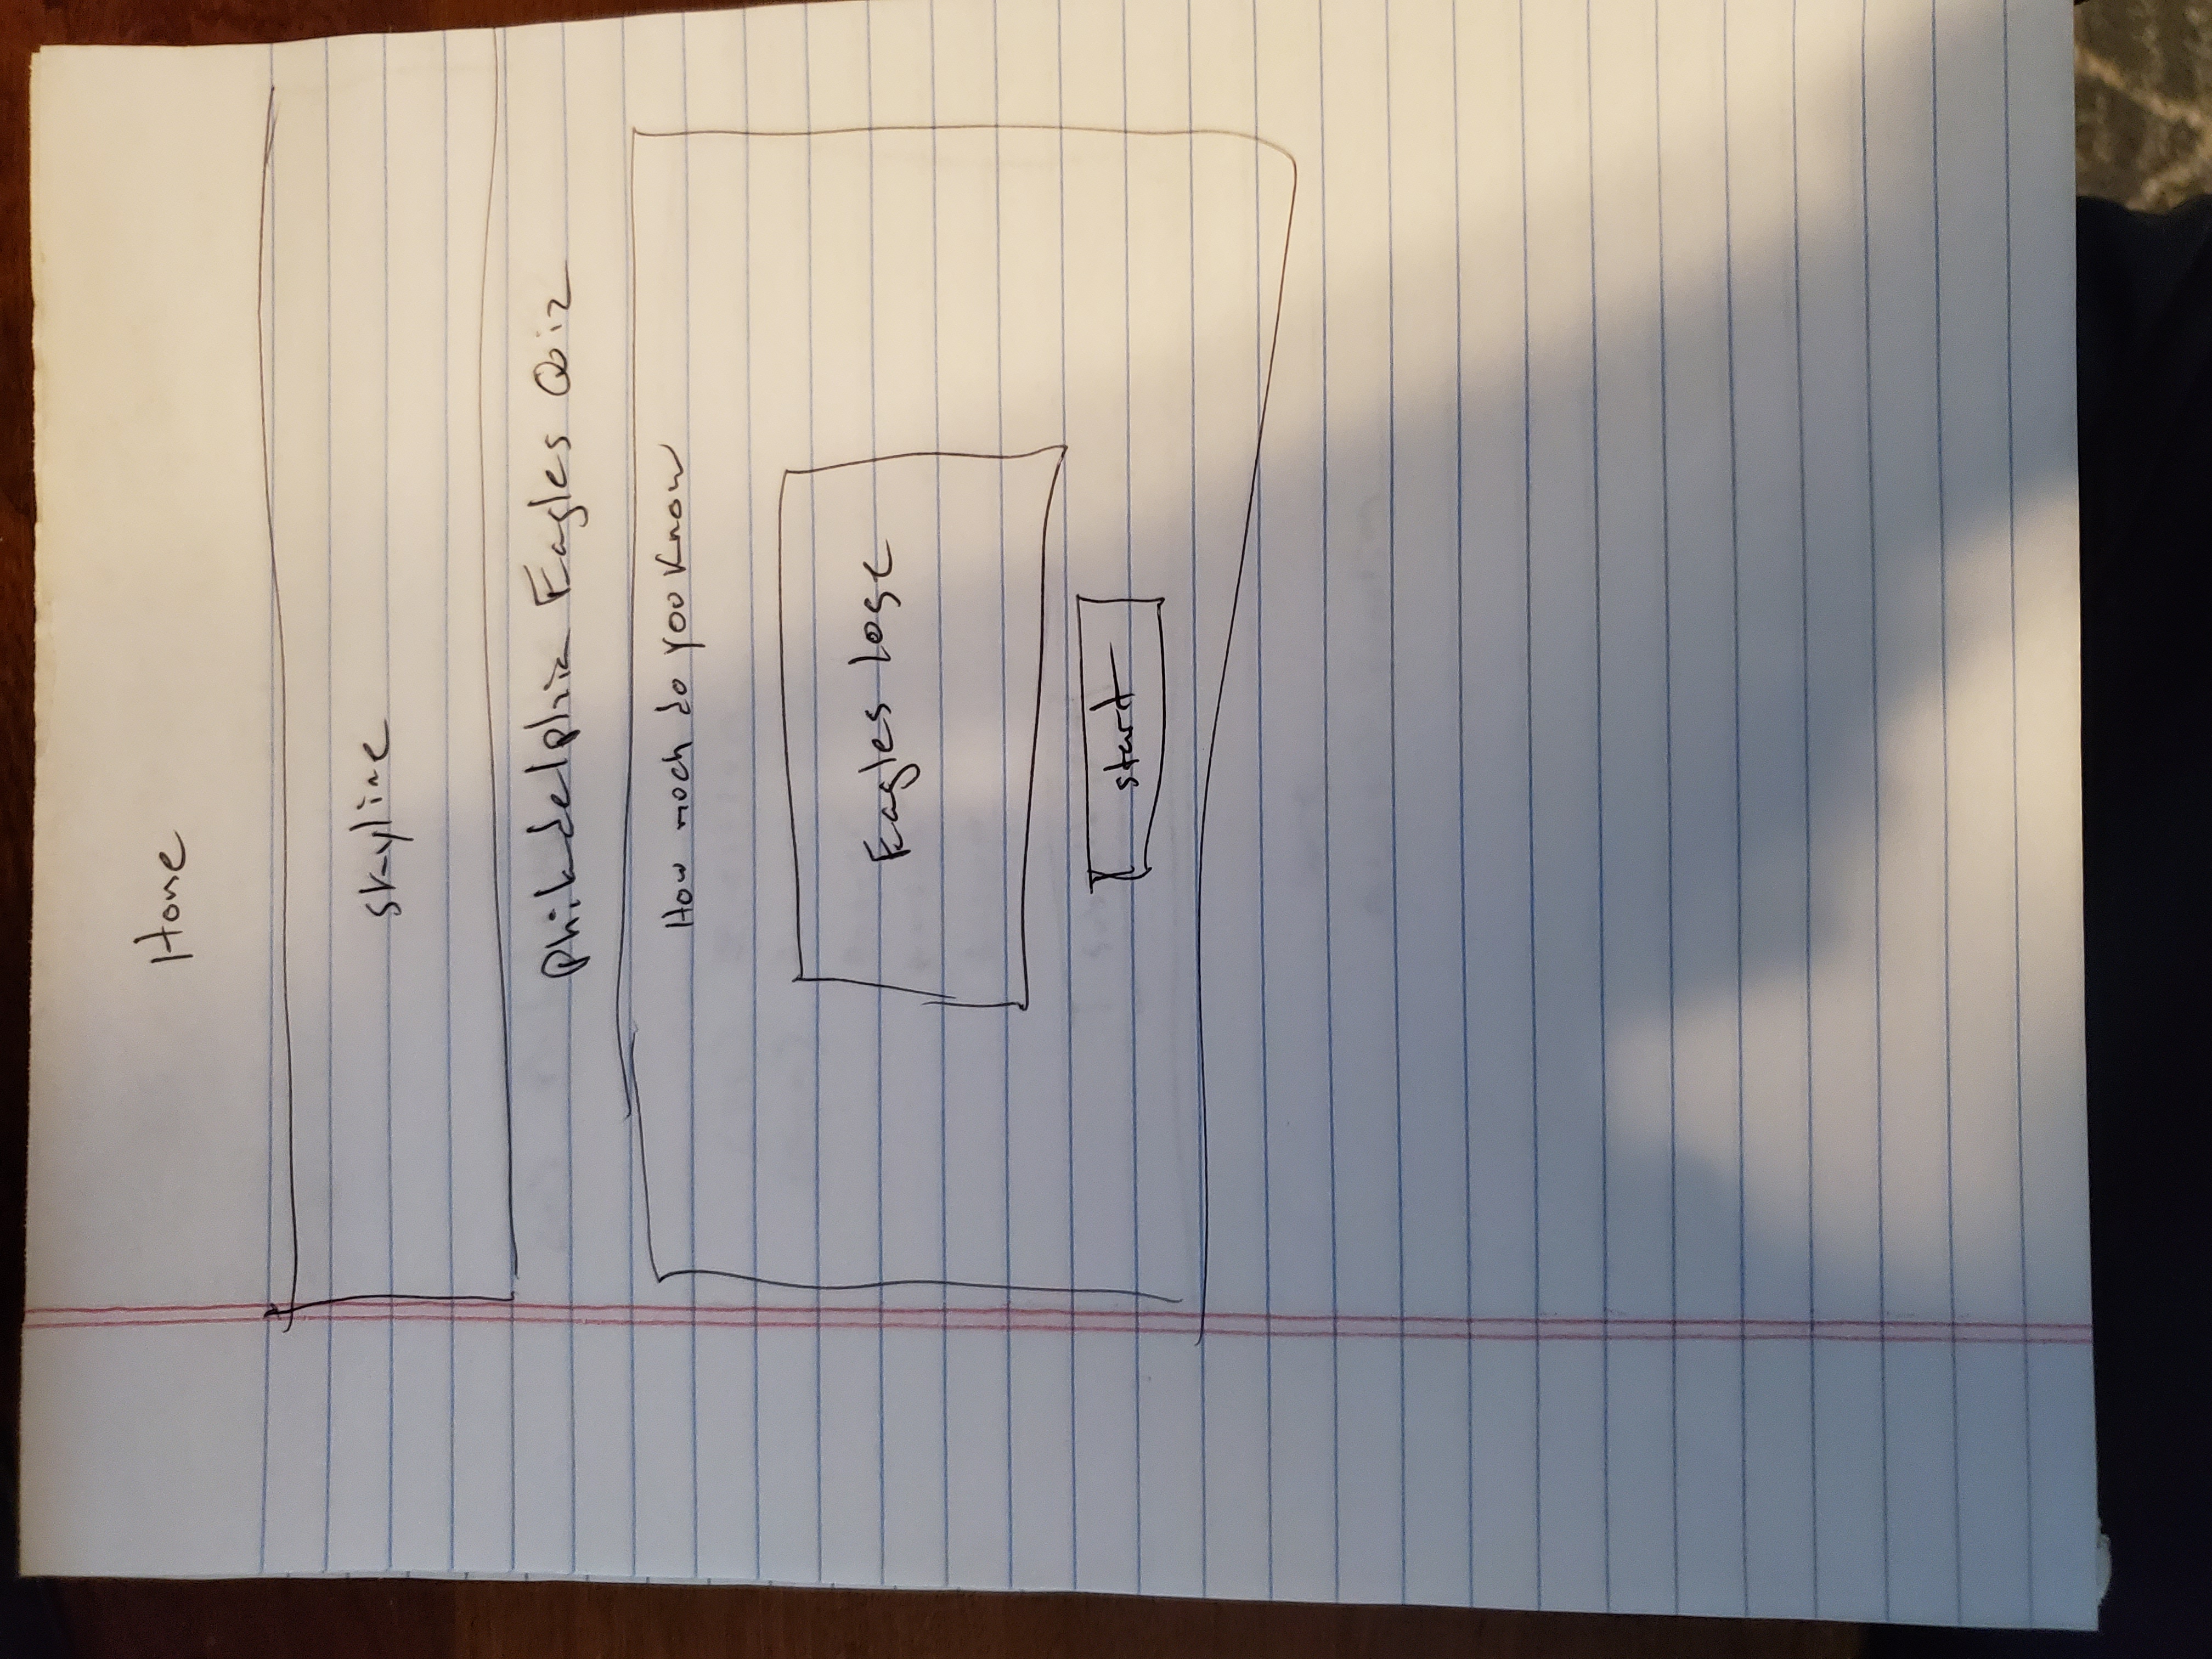 Home
skyline
Philadelphia Eagles Quiz
How much do you know
Eagles lose
start